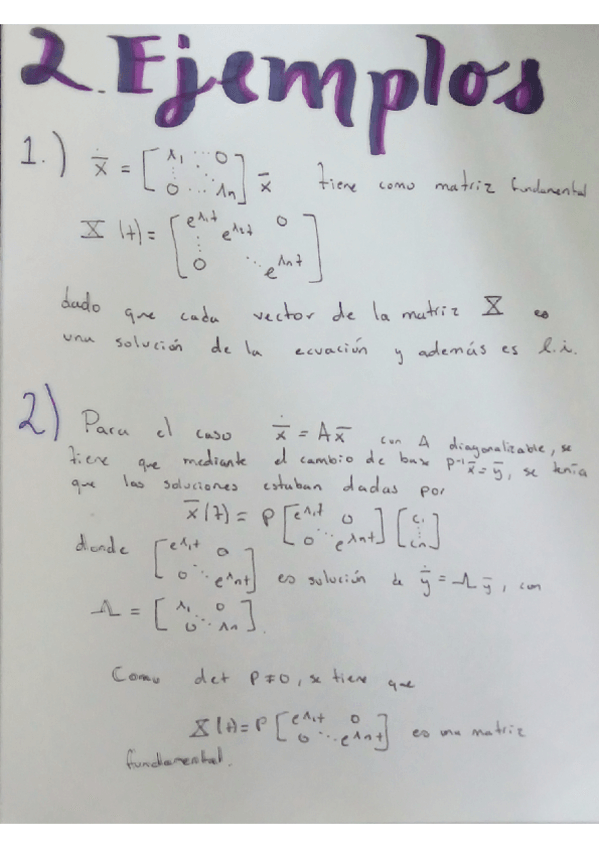 2. Ejemplos
1.) ẋ = [λ₁ ⋯ 0 ⋮ ⋱ ⋮ 0 ⋯ λn] x̄ tiene como matriz fundamental
X(t) = [e^λ₁t e^λ₂t 0 ⋮ ⋱ 0 e^λnt]
dado que cada vector de la matriz X es
una solución de la ecuación y además es l.i.
2) Para el caso ẋ = A x̄ con A diagonalizable, se
tiene que mediante el cambio de base P⁻¹x̄ = ȳ, se tenía
que las soluciones estaban dadas por
x̄(t) = P [e^λ₁t 0 0 ⋱ e^λnt] [c₁ ⋮ cn]
donde [e^λ₁t 0 0 ⋱ e^λnt] es solución de ẏ = Λ ȳ, con
Λ = [λ₁ 0 0 ⋱ λn].
Como det P ≠ 0, se tiene que
X(t) = P [e^λ₁t 0 0 ⋱ e^λnt] es una matriz
fundamental.